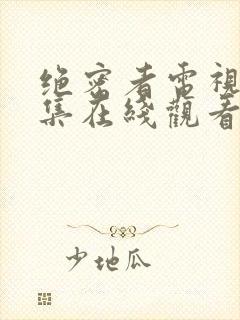 绝密者電視
集在綫觀看
少地瓜